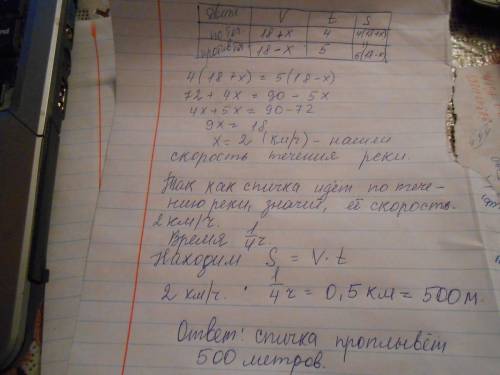 V t S
по теч. 18+x 4 4(18+x)
против теч. 18-x 5 5(18-x)
4(18+x) = 5(18-x)
72+4x = 90-5x
4x+5x = 90-72
9x = 18
x = 2 (км/ч) - нашли
скорость течения реки.
Так как спичка идёт по тече-
нию реки, значит, её скорость
2 км/ч.
Время 1/4 ч
Находим S = V·t
2 км/ч. · 1/4 ч = 0,5 км = 500 м.
Ответ: спичка проплывёт
500 метров.